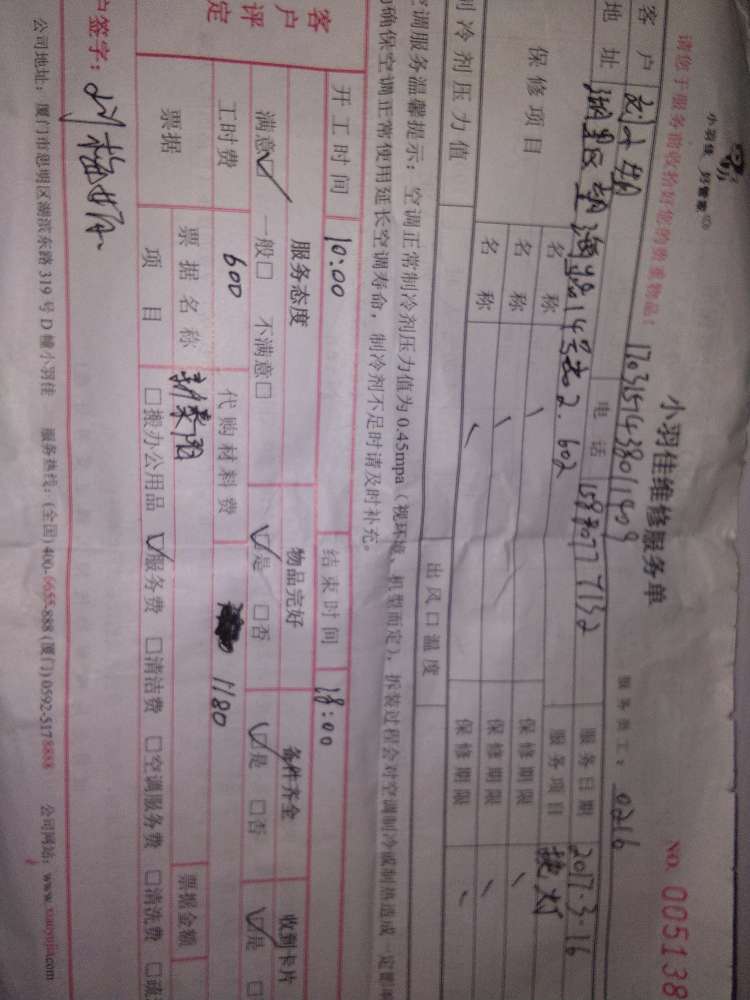 小羽佳 好管家
小羽佳维修服务单
NO. 005138
请您于服务前收拾好您的贵重物品！ 1703151438011409 服务员工： 0216
客户 电话 15880777132 服务日期 2017.3.16
地址 湖里区 14号 602 服务项目 换灯
保修项目 名称 保修期限
名称 保修期限
名称 保修期限
制冷剂压力值 出风口温度
空调服务温馨提示：空调正常制冷剂压力值为0.45mpa（视环境、机型而定），拆装过程会对空调制冷或制热造成一定影响
确保空调正常使用延长空调寿命，制冷剂不足时请及时补充。
开工时间 10:00 结束时间 18:00
客户评定 服务态度 物品完好 备件齐全 收到卡片
满意☑ 一般□ 不满意□ ☑是 □否 ☑是 □否 ☑是 □
工时费 600 代购材料费 1180
票据 票据名称 票据金额
项目 □搬办公用品 ☑服务费 □清洁费 □空调服务费 □清洗费 □疏
户签字：
公司地址：厦门市思明区湖滨东路319号D幢小羽佳 服务热线：(全国)400-6655-888 (厦门)0592-5178888 公司网站：www.xiaoyujia.com